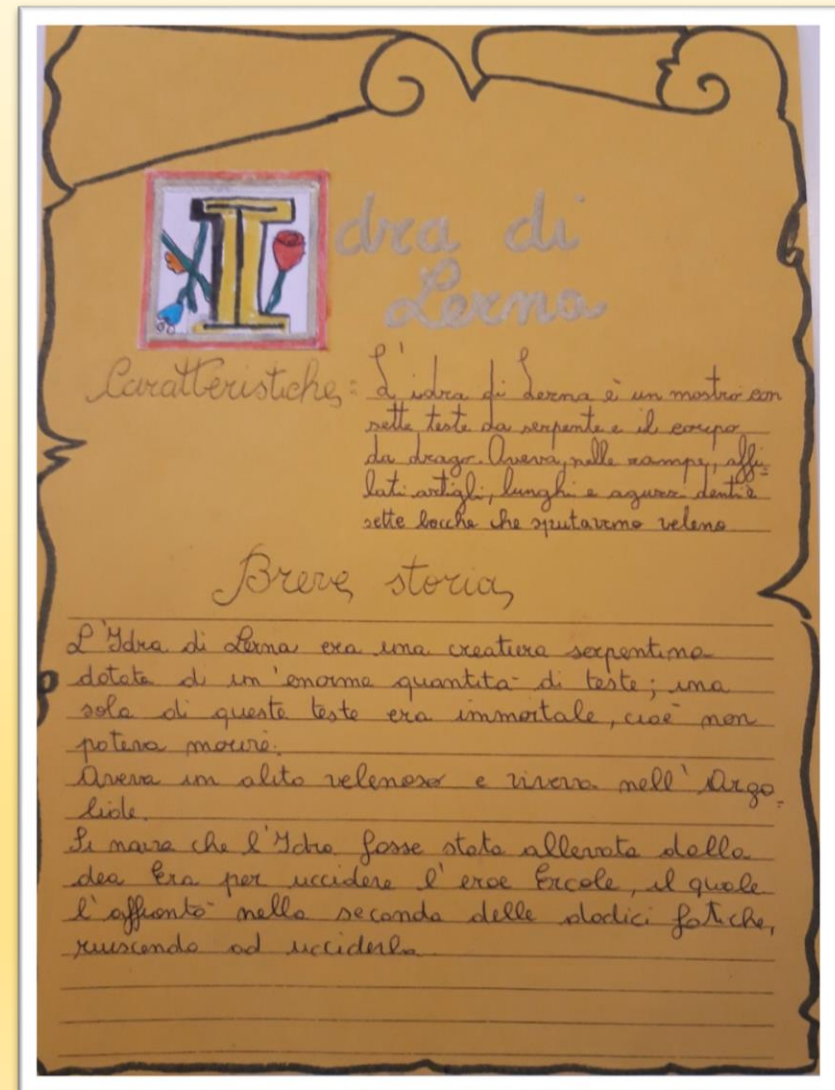 Idra di
Lerna
Caratteristiche: L'idra di Lerna è un mostro con
sette teste da serpente e il corpo
da drago. Aveva, nelle zampe, affi=
lati artigli, lunghi e aguzzi denti e
sette bocche che sputavano veleno
Breve storia
L'Idra di Lerna era una creatura serpentina
dotata di un'enorme quantità di teste; una
sola di queste teste era immortale, cioè non
poteva morire.
Aveva un alito velenoso e viveva nell'Argo=
lide.
Si narra che l'Idra fosse stata allevata dalla
dea Era per uccidere l'eroe Ercole, il quale
l'affrontò nella seconda delle dodici fatiche,
riuscendo ad ucciderla